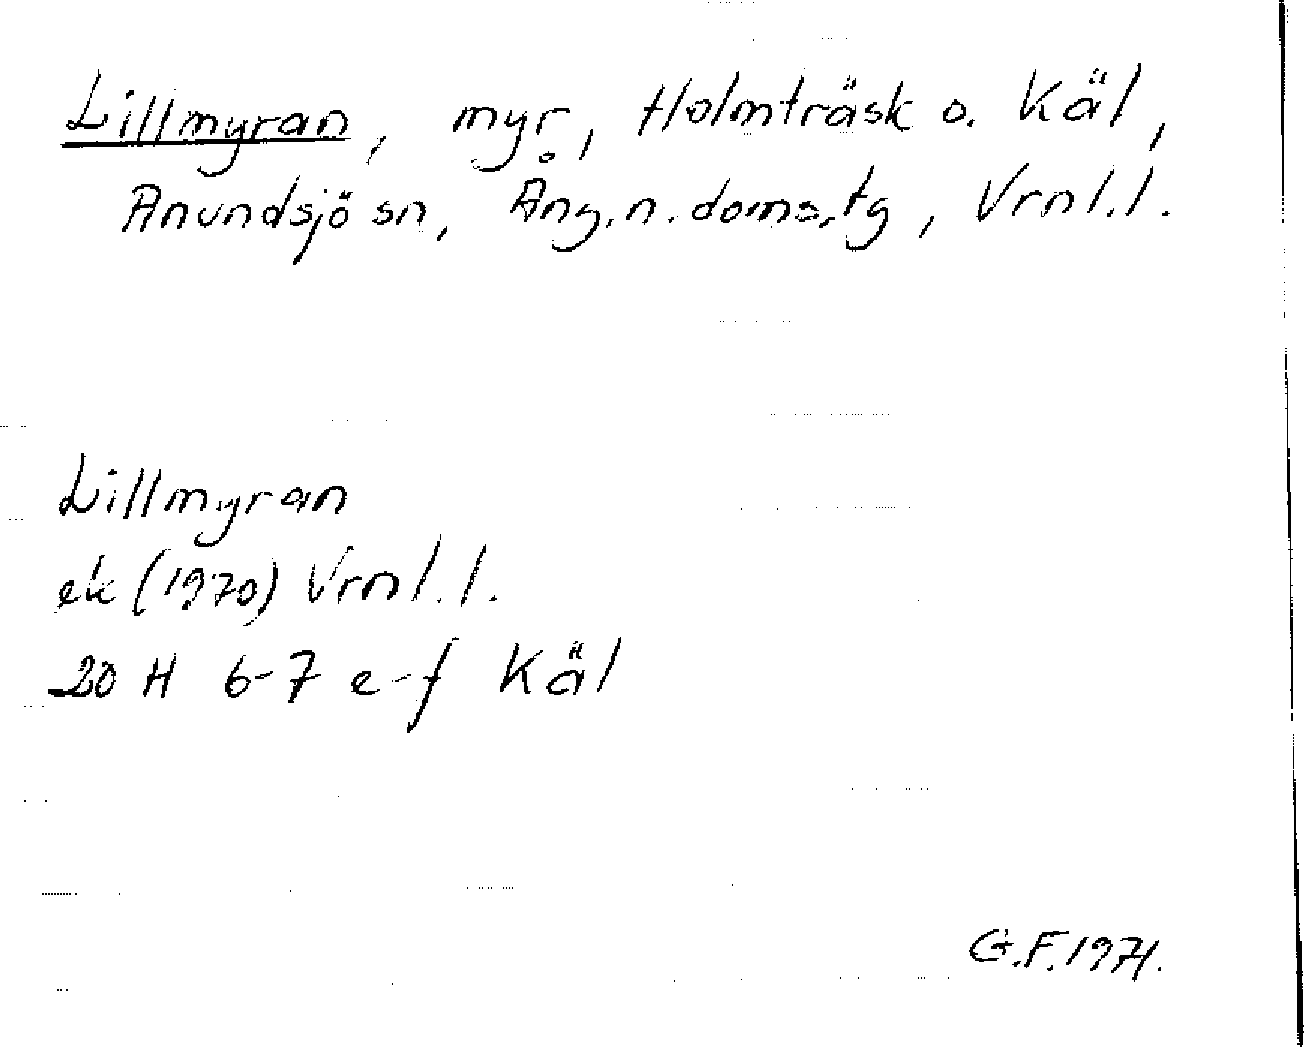 Lillmyran, myr, Holmträsk o. Käl,
Anundsjö sn, Ång.n.doms.tg, Vrnl.l.
Lillmyran
ek (1970) Vrnl.l.
20 H 6-7 e-f Käl
G.F.1971.